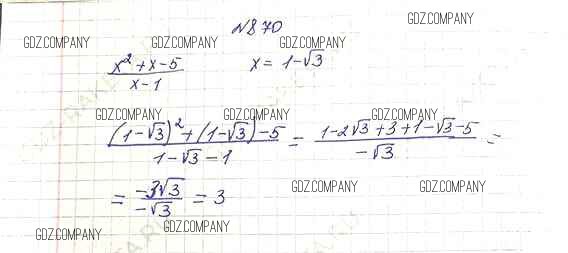 GDZ.COMPANY
N870
GDZ.COMPANY GDZ.COMPANY GDZ.COMPANY
(x² + x - 5)/(x - 1) x = 1-√3
GDZ.COMPANY GDZ.COMPANY GDZ.COMPANY
((1-√3)² + (1-√3) - 5)/(1-√3-1) = (1-2√3+3+1-√3-5)/(-√3) =
= (-3√3)/(-√3) = 3
GDZ.COMPANY GDZ.COMPANY
GDZ.COMPANY GDZ.COMPANY